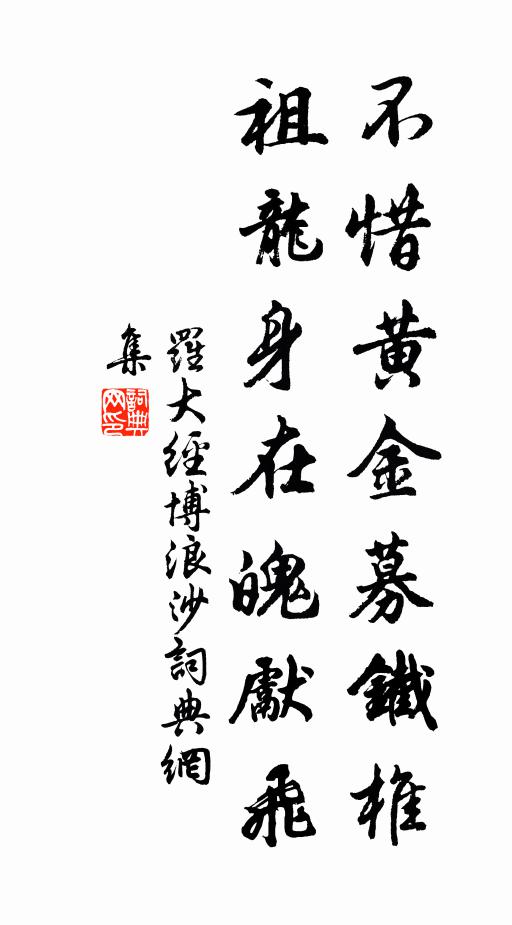 不惜黄金募鐵椎
祖龍身在魄獻飛
羅大經博浪沙詞典網
集
詞典
网印